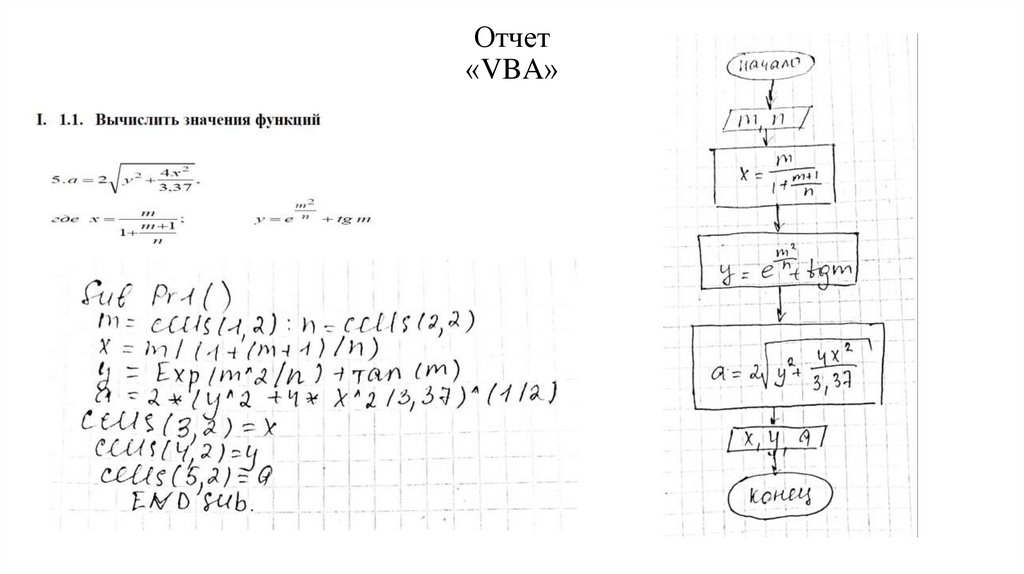 Отчет
«VBA»
I. 1.1. Вычислить значения функций
5. a = 2 √(y² + 4x²/3,37),
где x = m/(1+(m+1)/n); y = e^(m²/n) + tg m
Sub Pr1()
m = cells(1,2) : n = cells(2,2)
x = m/(1+(m+1)/n)
y = Exp(m^2/n)+tan(m)
a = 2*(y^2+4*x^2/3,37)^(1/2)
cells(3,2)=x
cells(4,2)=y
cells(5,2)=a
END Sub.
начало
m, n
x = m/(1+(m+1)/n)
y = e^(m²/n) + tgm
a = 2√(y² + 4x²/3,37)
x, y, a
конец